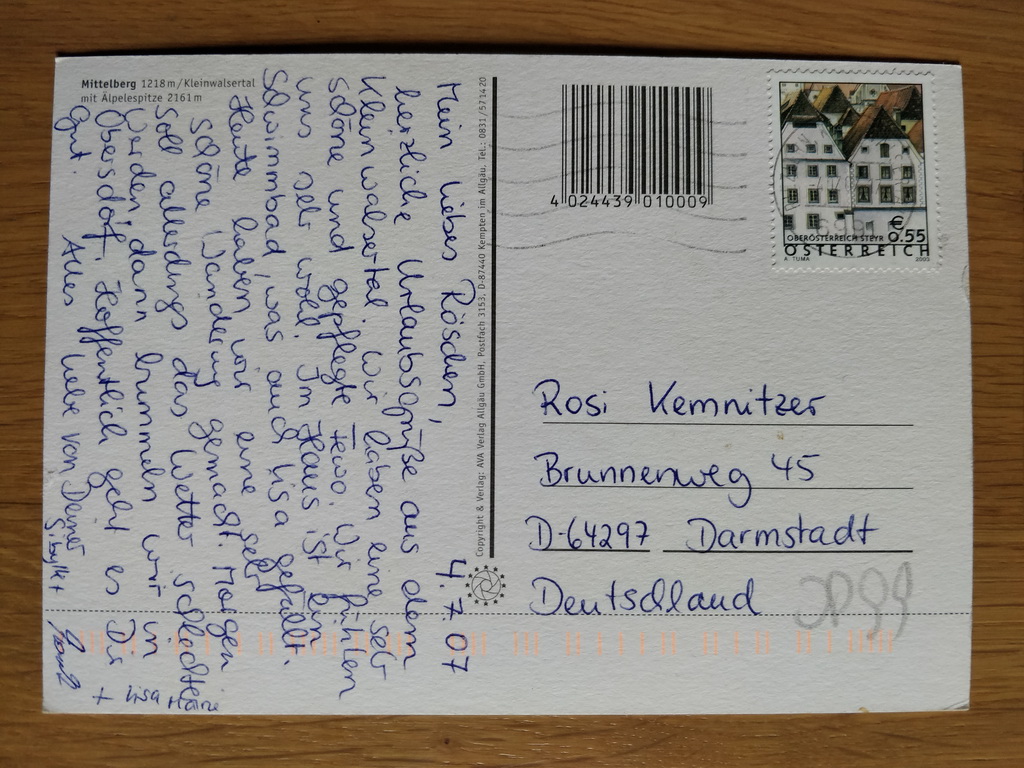 Mittelberg 1218 m/Kleinwalsertal
mit Älpelespitze 2161 m
4.7.07
Mein liebes Röschen,
herzliche Urlaubsgrüße aus dem
Kleinwalsertal. Wir haben eine sehr
schöne und gepflegte Fewo. Wir fühlen
uns sehr wohl. Im Haus ist ein
Schwimmbad, was auch Lisa gefällt.
Heute haben wir eine sehr
schöne Wanderung gemacht. Morgen
soll allerdings das Wetter schlechter
werden, dann bummeln wir in
Obersdorf. Hoffentlich geht es Dir
gut. Alles Liebe von Deiner
Sibylle +
+ Lisa
Copyright & Verlag: AVA Verlag Allgäu GmbH, Postfach 3153, D-87440 Kempten im Allgäu, Tel.: 0831/571420
4 024439 010009
OBERÖSTERREICH STEYR
€ 0.55
ÖSTERREICH
A. TUMA 2003
Rosi Kemnitzer
Brunnenweg 45
D-64297 Darmstadt
Deutschland